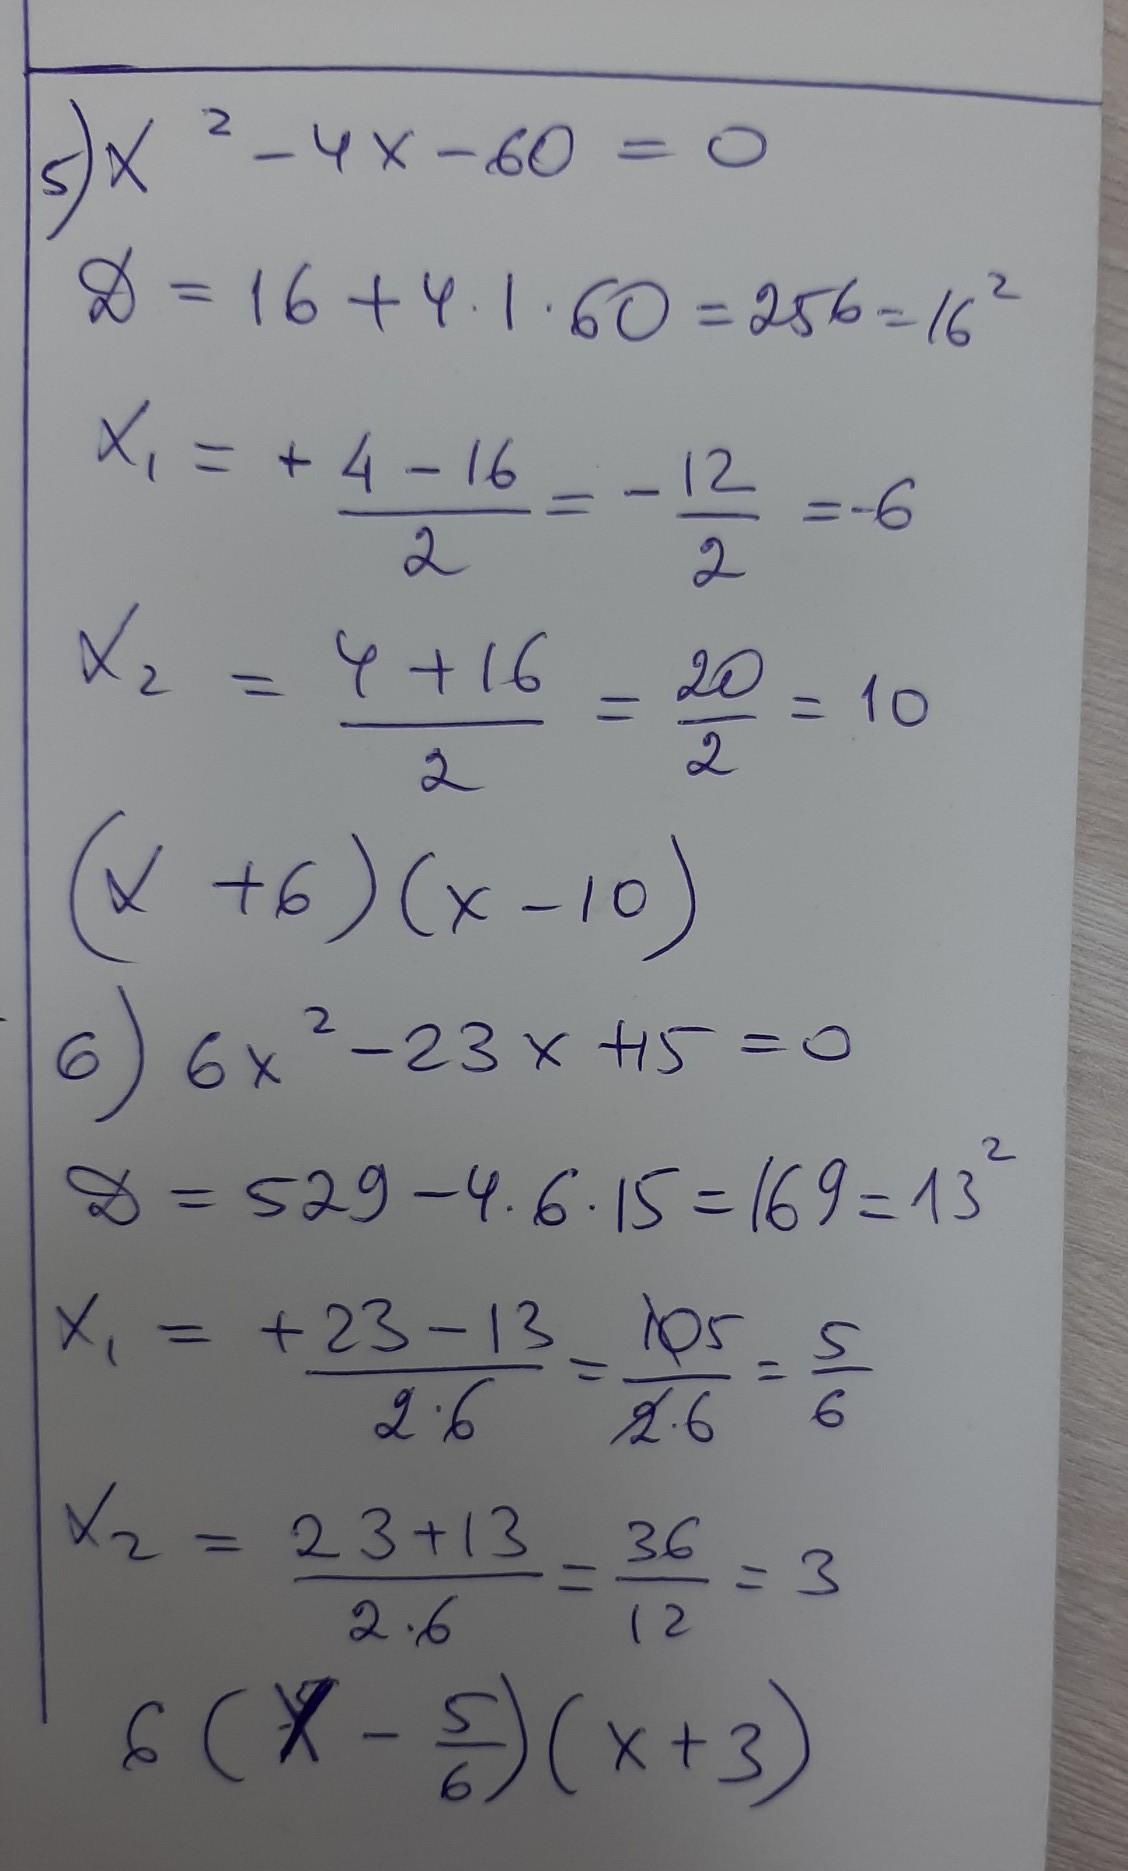 5) x² - 4x - 60 = 0
D = 16 + 4·1·60 = 256 = 16²
x₁ = + (4 - 16)/2 = - 12/2 = -6
x₂ = (4 + 16)/2 = 20/2 = 10
(x + 6)(x - 10)
6) 6x² - 23x + 15 = 0
D = 529 - 4·6·15 = 169 = 13²
x₁ = (+23 - 13)/(2·6) = 10 5/(2·6) = 5/6
x₂ = (23 + 13)/(2·6) = 36/12 = 3
6(x - 5/6)(x + 3)